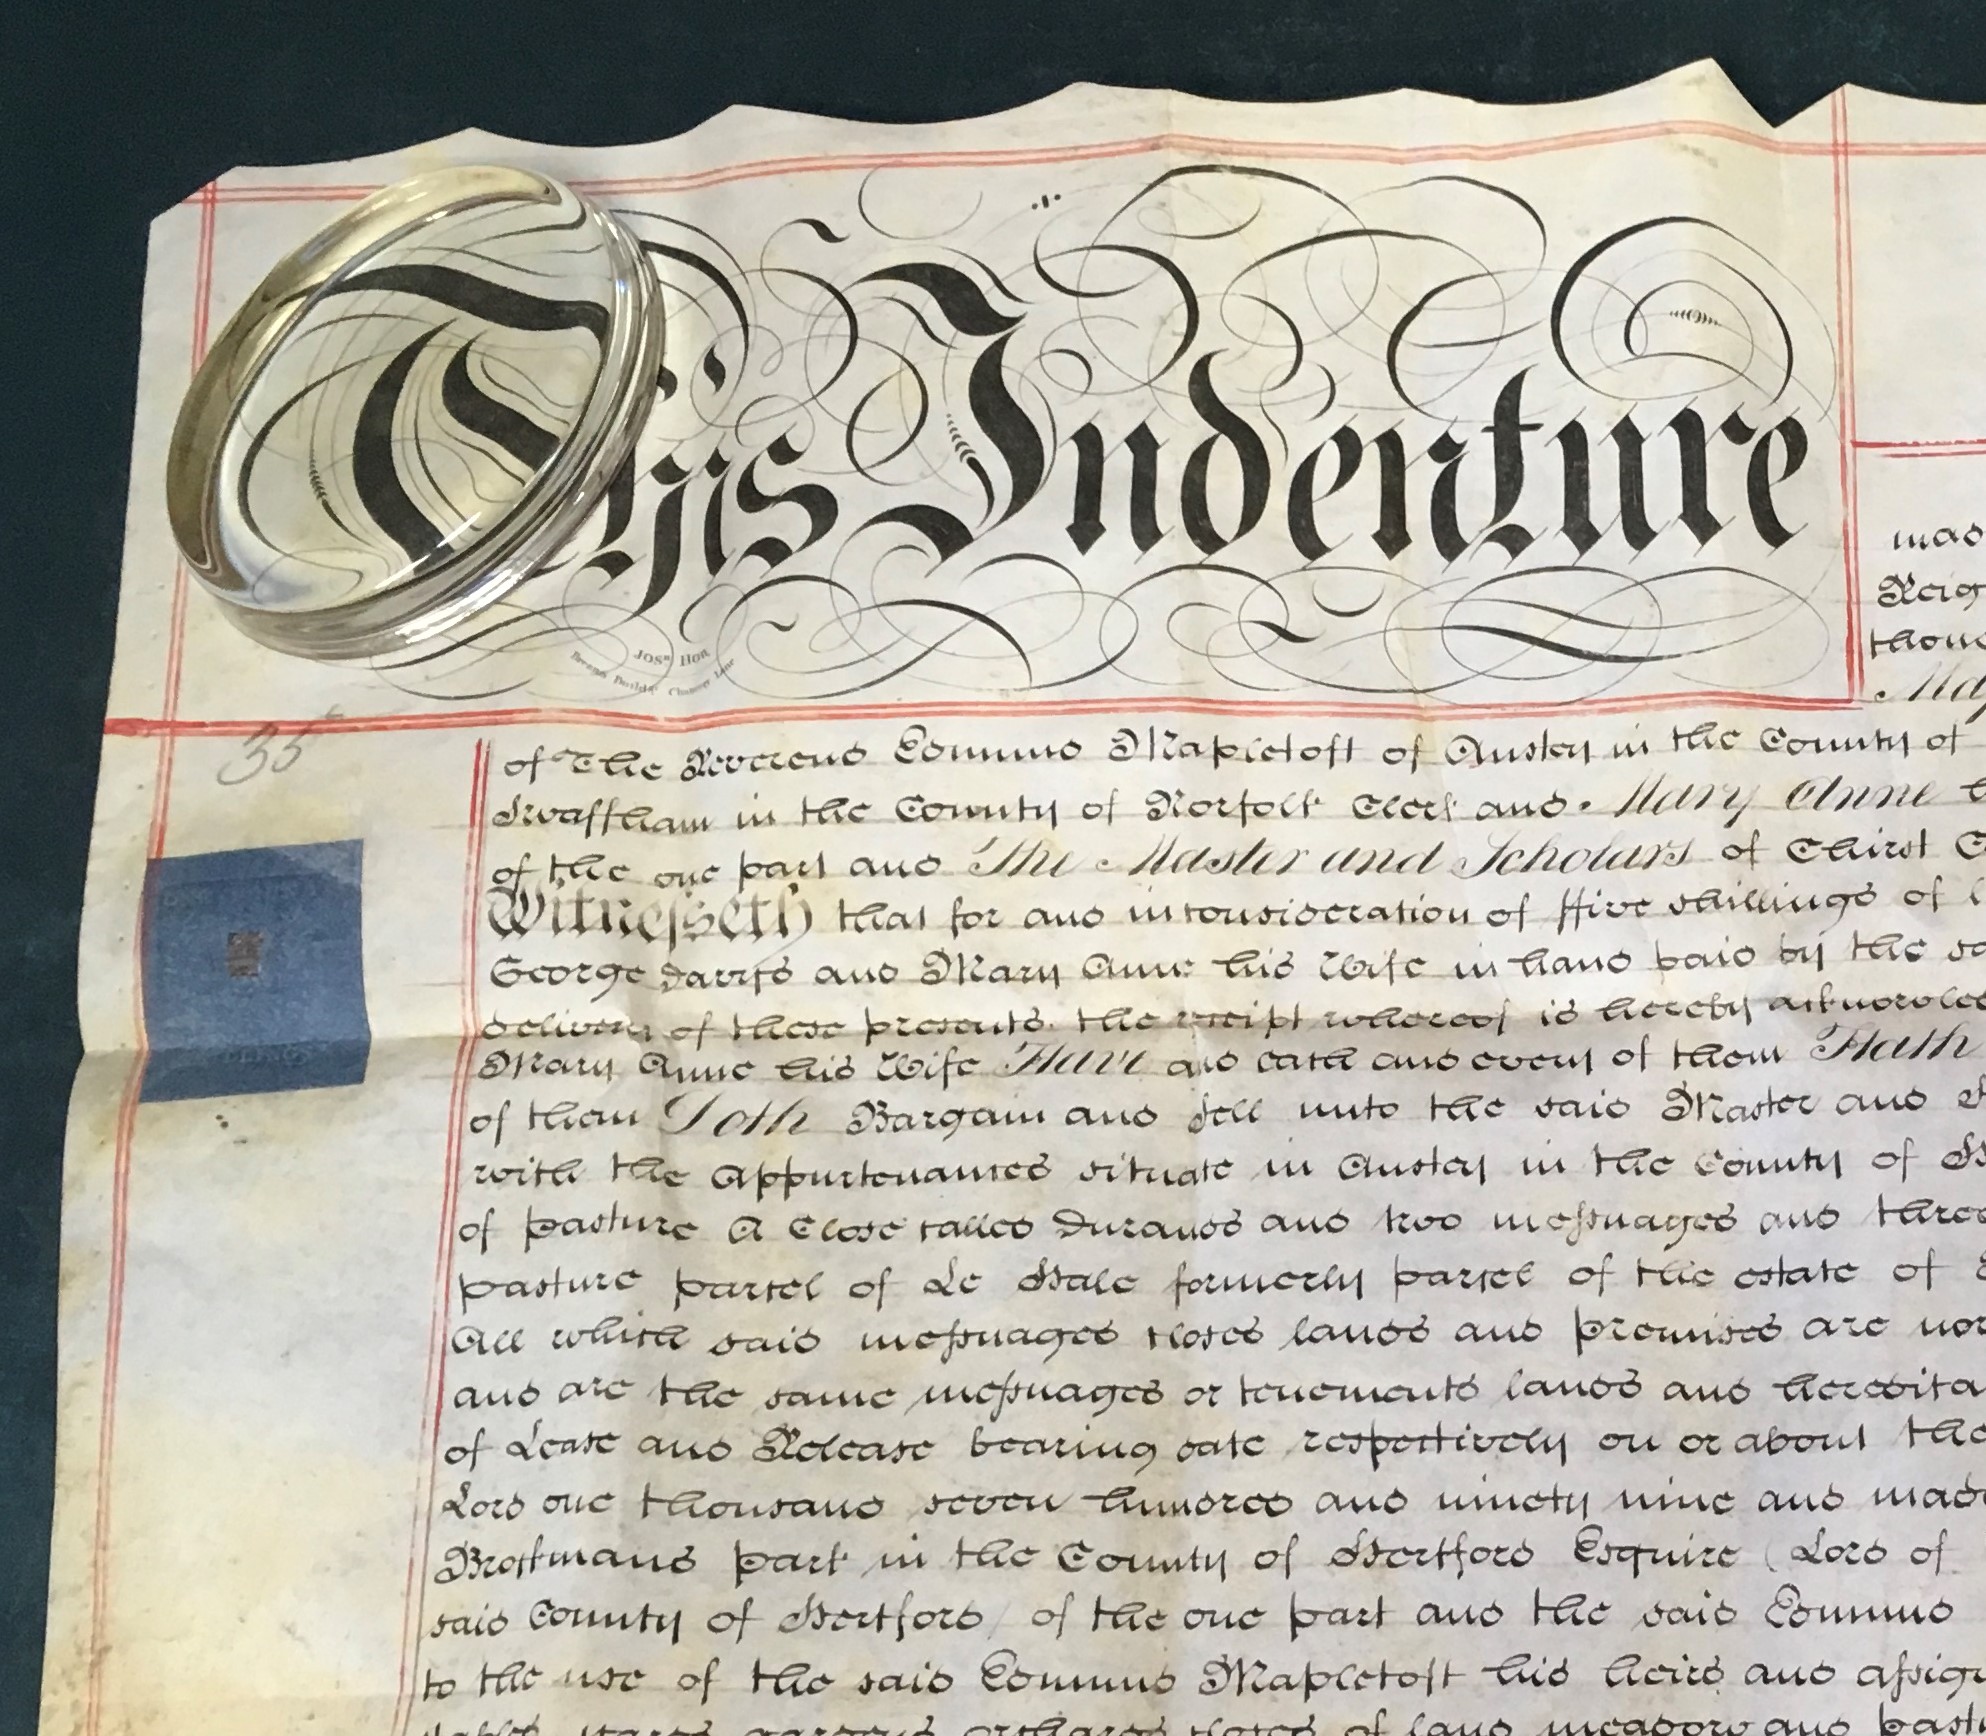 This Indenture
made
Reig
thous
Maj
Josh Hon
Chancery Lane
35
of The Reverend Edmund Mapletoft of Anstey in the County of
Swaffham in the County of Norfolk Clerk and Mary Anne
of the one part and The Master and Scholars of Christ C
Witnesseth that for and in consideration of ffive shillings of l
George Davys and Mary Anne his Wife in hand paid by the sa
delivery of these presents the receipt whereof is hereby acknowled
Mary Anne his Wife Have and each and every of them Hath
of them Doth Bargain and Sell unto the said Master and S
with the Appurtenances situate in Anstey in the County of H
of pasture A Close called Durands and two messuages and three
pasture parcel of Le Hale formerly parcel of the estate of
All which said messuages closes lands and premises are now
and are the same messuages or tenements lands and heredita
of Lease and Release bearing date respectively on or about the
Lord one thousand seven hundred and ninety nine and made
Brockmans park in the County of Hertford Esquire (Lord of
said County of Hertford) of the one part and the said Edmund
to the use of the said Edmund Mapletoft his heirs and assign
gardens orchards closes of land meadow and past